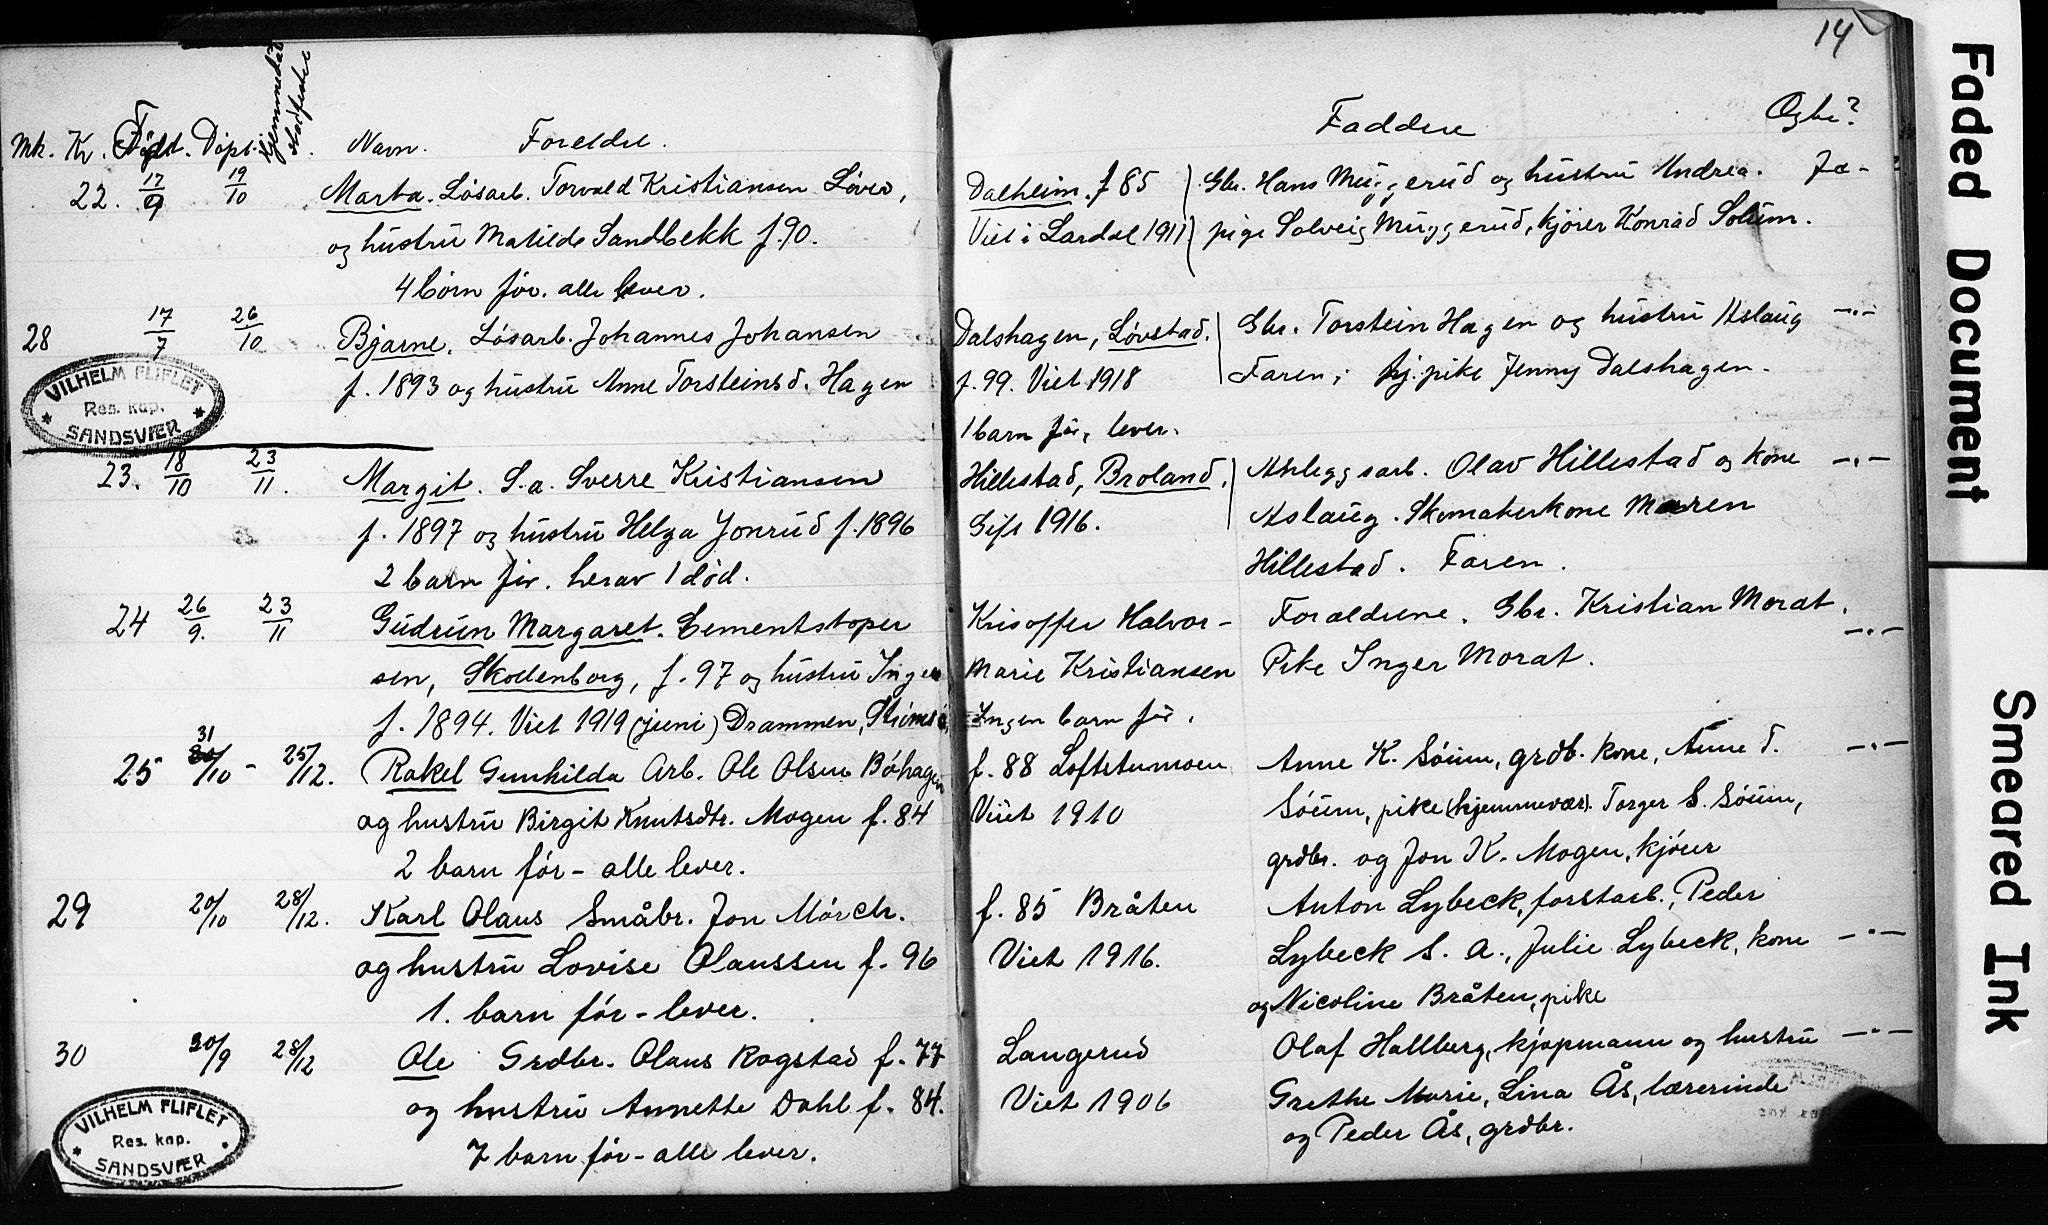 14
Mk. Kv. Født. Døpt. Hjemmedåb stadfestet Navn. Foreldre. Faddere Ogbe?
22. 17/9 19/10 Marta. Løsarb. Torvald Kristiansen Løver, Dalheim. f 85 Gbr. Hans Muggerud og hustru Andrea. Ja-
og hustru Matilde Sandbekk f. 90. Viet i Lardal 1911 pige Solveig Muggerud, kjører Konrad Solum.
4 børn før. alle lever.
28 17/7 26/10 Bjarne. Løsarb. Johannes Johansen Dalshagen, Løvstad. Gbr. Torstein Hagen og hustru Aslaug -"-
f. 1893 og hustru Anne Torsteinsd. Hagen f. 99. Viet 1918 Faren; hj. pike Jenny Dalshagen.
1 barn før, lever.
VILHELM FLIFLET
Res. kap.
SANDSVÆR
23. 18/10 23/11. Margit. S.a. Sverre Kristiansen Hillestad, Broland. Anleggsarb. Olav Hillestad og kone -"-
f. 1897 og hustru Helga Jonrud f. 1896 Gift 1916. Aslaug. Skomakerkone Maren
2 barn før. herav 1 død. Hillestad. Faren.
24 26/9. 23/11 Gudrun Margaret. Cementstøper Krisoffer Halvor- Foraldrene. Gbr. Kristian Morat.
sen, Skodenborg, f. 97 og hustru Inger Marie Kristiansen Pike Inger Morat. -"-
f. 1894. Viet 1919 (juni) Drammen, Strømsø, Ingen barn før.
25 31/10 - 25/12. Rakel Gunhilda Arb. Ole Olsen Bøhagen f. 88 Loftstumoen Anne K. Søum, grdb. kone, Anne T. -"-
og hustru Birgit Knutsdtr. Mogen f. 84 Viet 1910 Søum, pike (hjemmevær). Torger S. Søum,
2 barn før - alle lever. grdbr. og Jon K. Mogen, kjører
29 20/10 28/12. Karl Olaus Småbr. Jon Mørch. f. 85 Bråten Anton Lybeck, forstarb., Peder
og hustru Lovise Olaussen f. 96 Viet 1916. Lybeck S. A., Julie Lybeck, kone -"-
1. barn før - lever. og Nicoline Bråten, pike
30 30/9 28/12 Ole Grdbr. Olaus Rogstad f. 77 Langerud Olaf Hallberg, kjøpmann og hustru -"-
og hustru Annette Dahl f. 84. Viet 1906 Grethe Marie, Lina Ås, lærerinde
7 barn før - alle lever. og Peder Ås, grdbr.
VILHELM FLIFLET
Res. kap.
SANDSVÆR
Faded Document
Smeared Ink